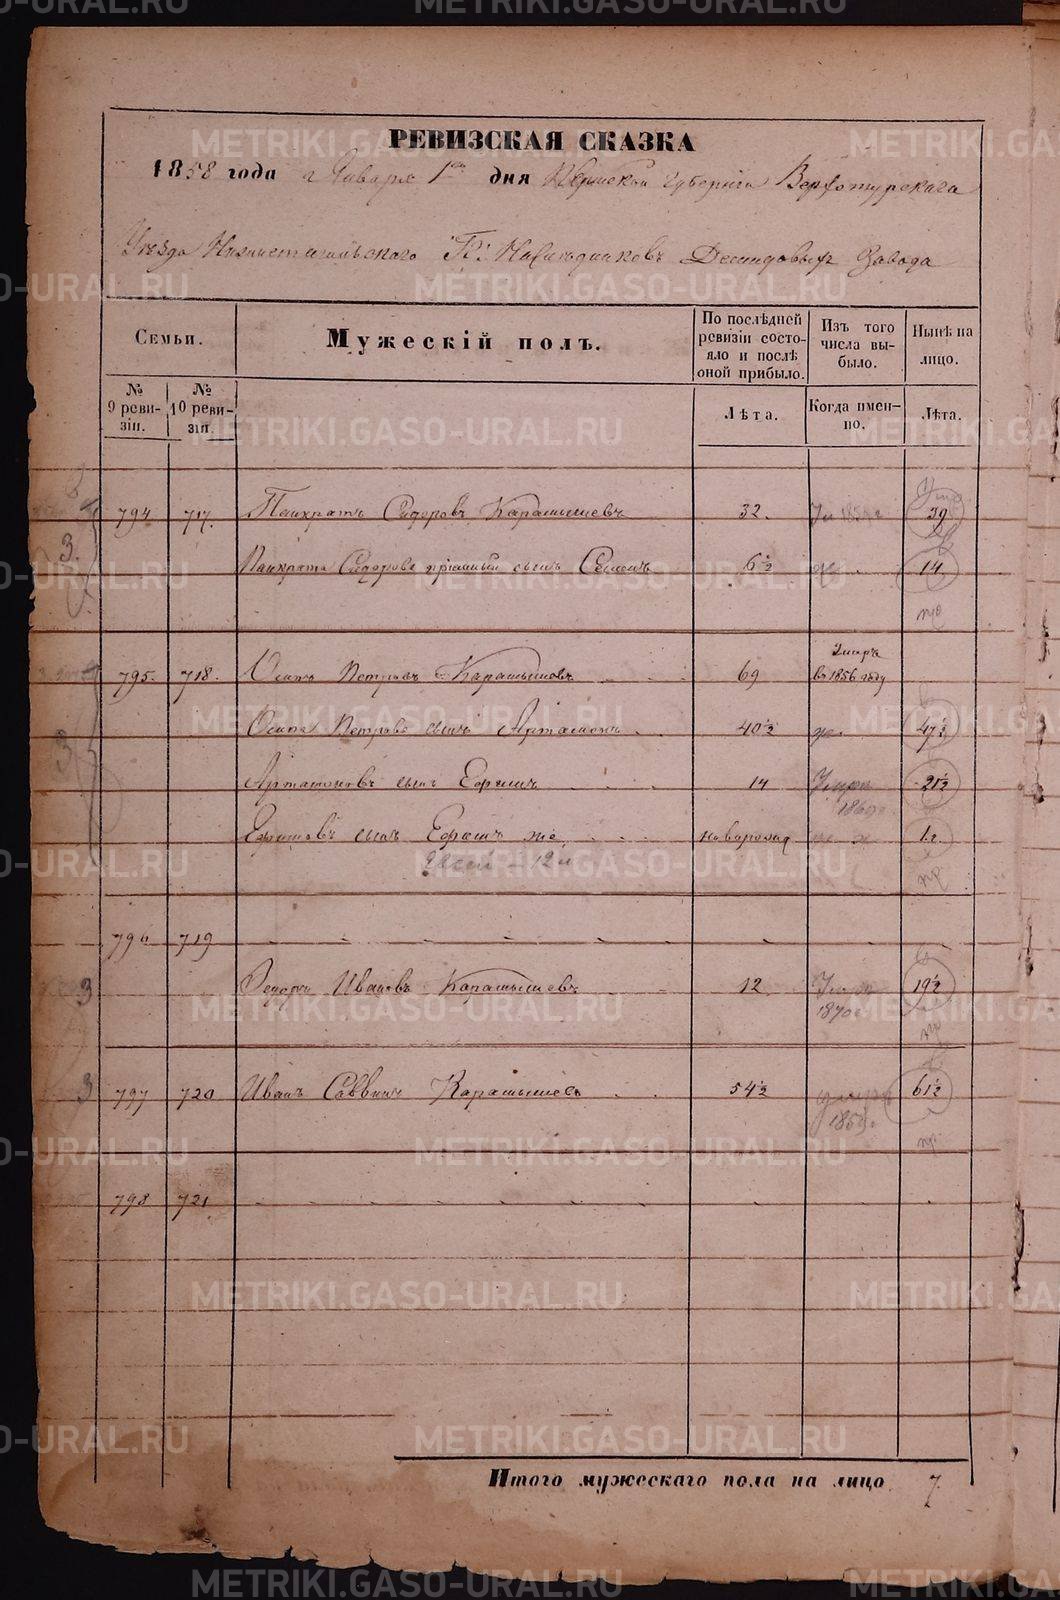 РЕВИЗСКАЯ СКАЗКА
1858 года Января 1го дня Пермской губернiи Верхотурскаго
Уѣзда Нижнетагильскаго Гг. Наслѣдниковъ Демидовыхъ Завода
Семьи.
Мужескiй полъ.
По послѣдней ревизiи состояло и послѣ оной прибыло.
Изъ того числа выбыло.
Нынѣ на лицо.
№ 9 ревизiи.
№ 10 ревизiи.
Лѣта.
Когда именно.
Лѣта.
794 717. Панкратъ Сидоровъ Карамышевъ 32. 39
3. Панкрата Сидорова прiемный сынъ Семенъ 6½ 14
795. 718. Осипъ Петровъ Карамышевъ 69 Умеръ въ 1856 году
Осипа Петрова сынъ Артамонъ 40½ 47½
3
Артамоновъ сынъ Ефимъ 14 Умеръ 186 21½
Ефимовъ сынъ Ефимъ же новорожд 1.
12
796 719
3 Иванов Карамышевъ 12 1870 19½
3 797 720 Иванъ Саввинъ Карамышевъ 54½ умеръ 1859. 61½
798 721
Итого мужескаго пола на лицо 7.
METRIKI.GASO-URAL.RU